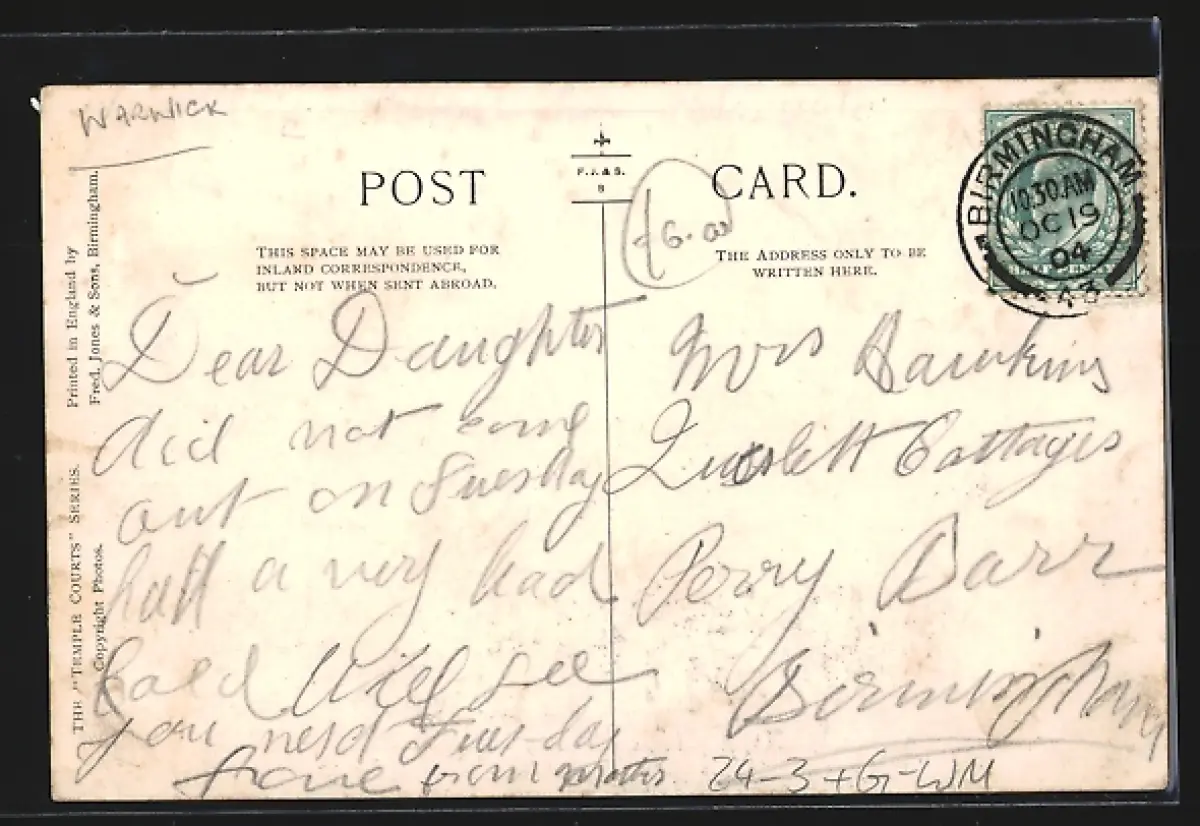 WARWICK
POST CARD.
F.J. & S.
G.
THIS SPACE MAY BE USED FOR
INLAND CORRESPONDENCE,
BUT NOT WHEN SENT ABROAD.
THE ADDRESS ONLY TO BE
WRITTEN HERE.
BIRMINGHAM
10.30 AM
OC 19
04
HALFPENNY
Printed in England by
Fred. Jones & Sons, Birmingham.
THE "TEMPLE COURTS" SERIES.
Copyright Photos.
Dear Daughter
did not come
out on Tuesday
hatt a very bad
Cold Will see
you next Tuesday
from
Mrs Hawkins
Cottages
Perry Barr
Birmingham
24-3+G-WM